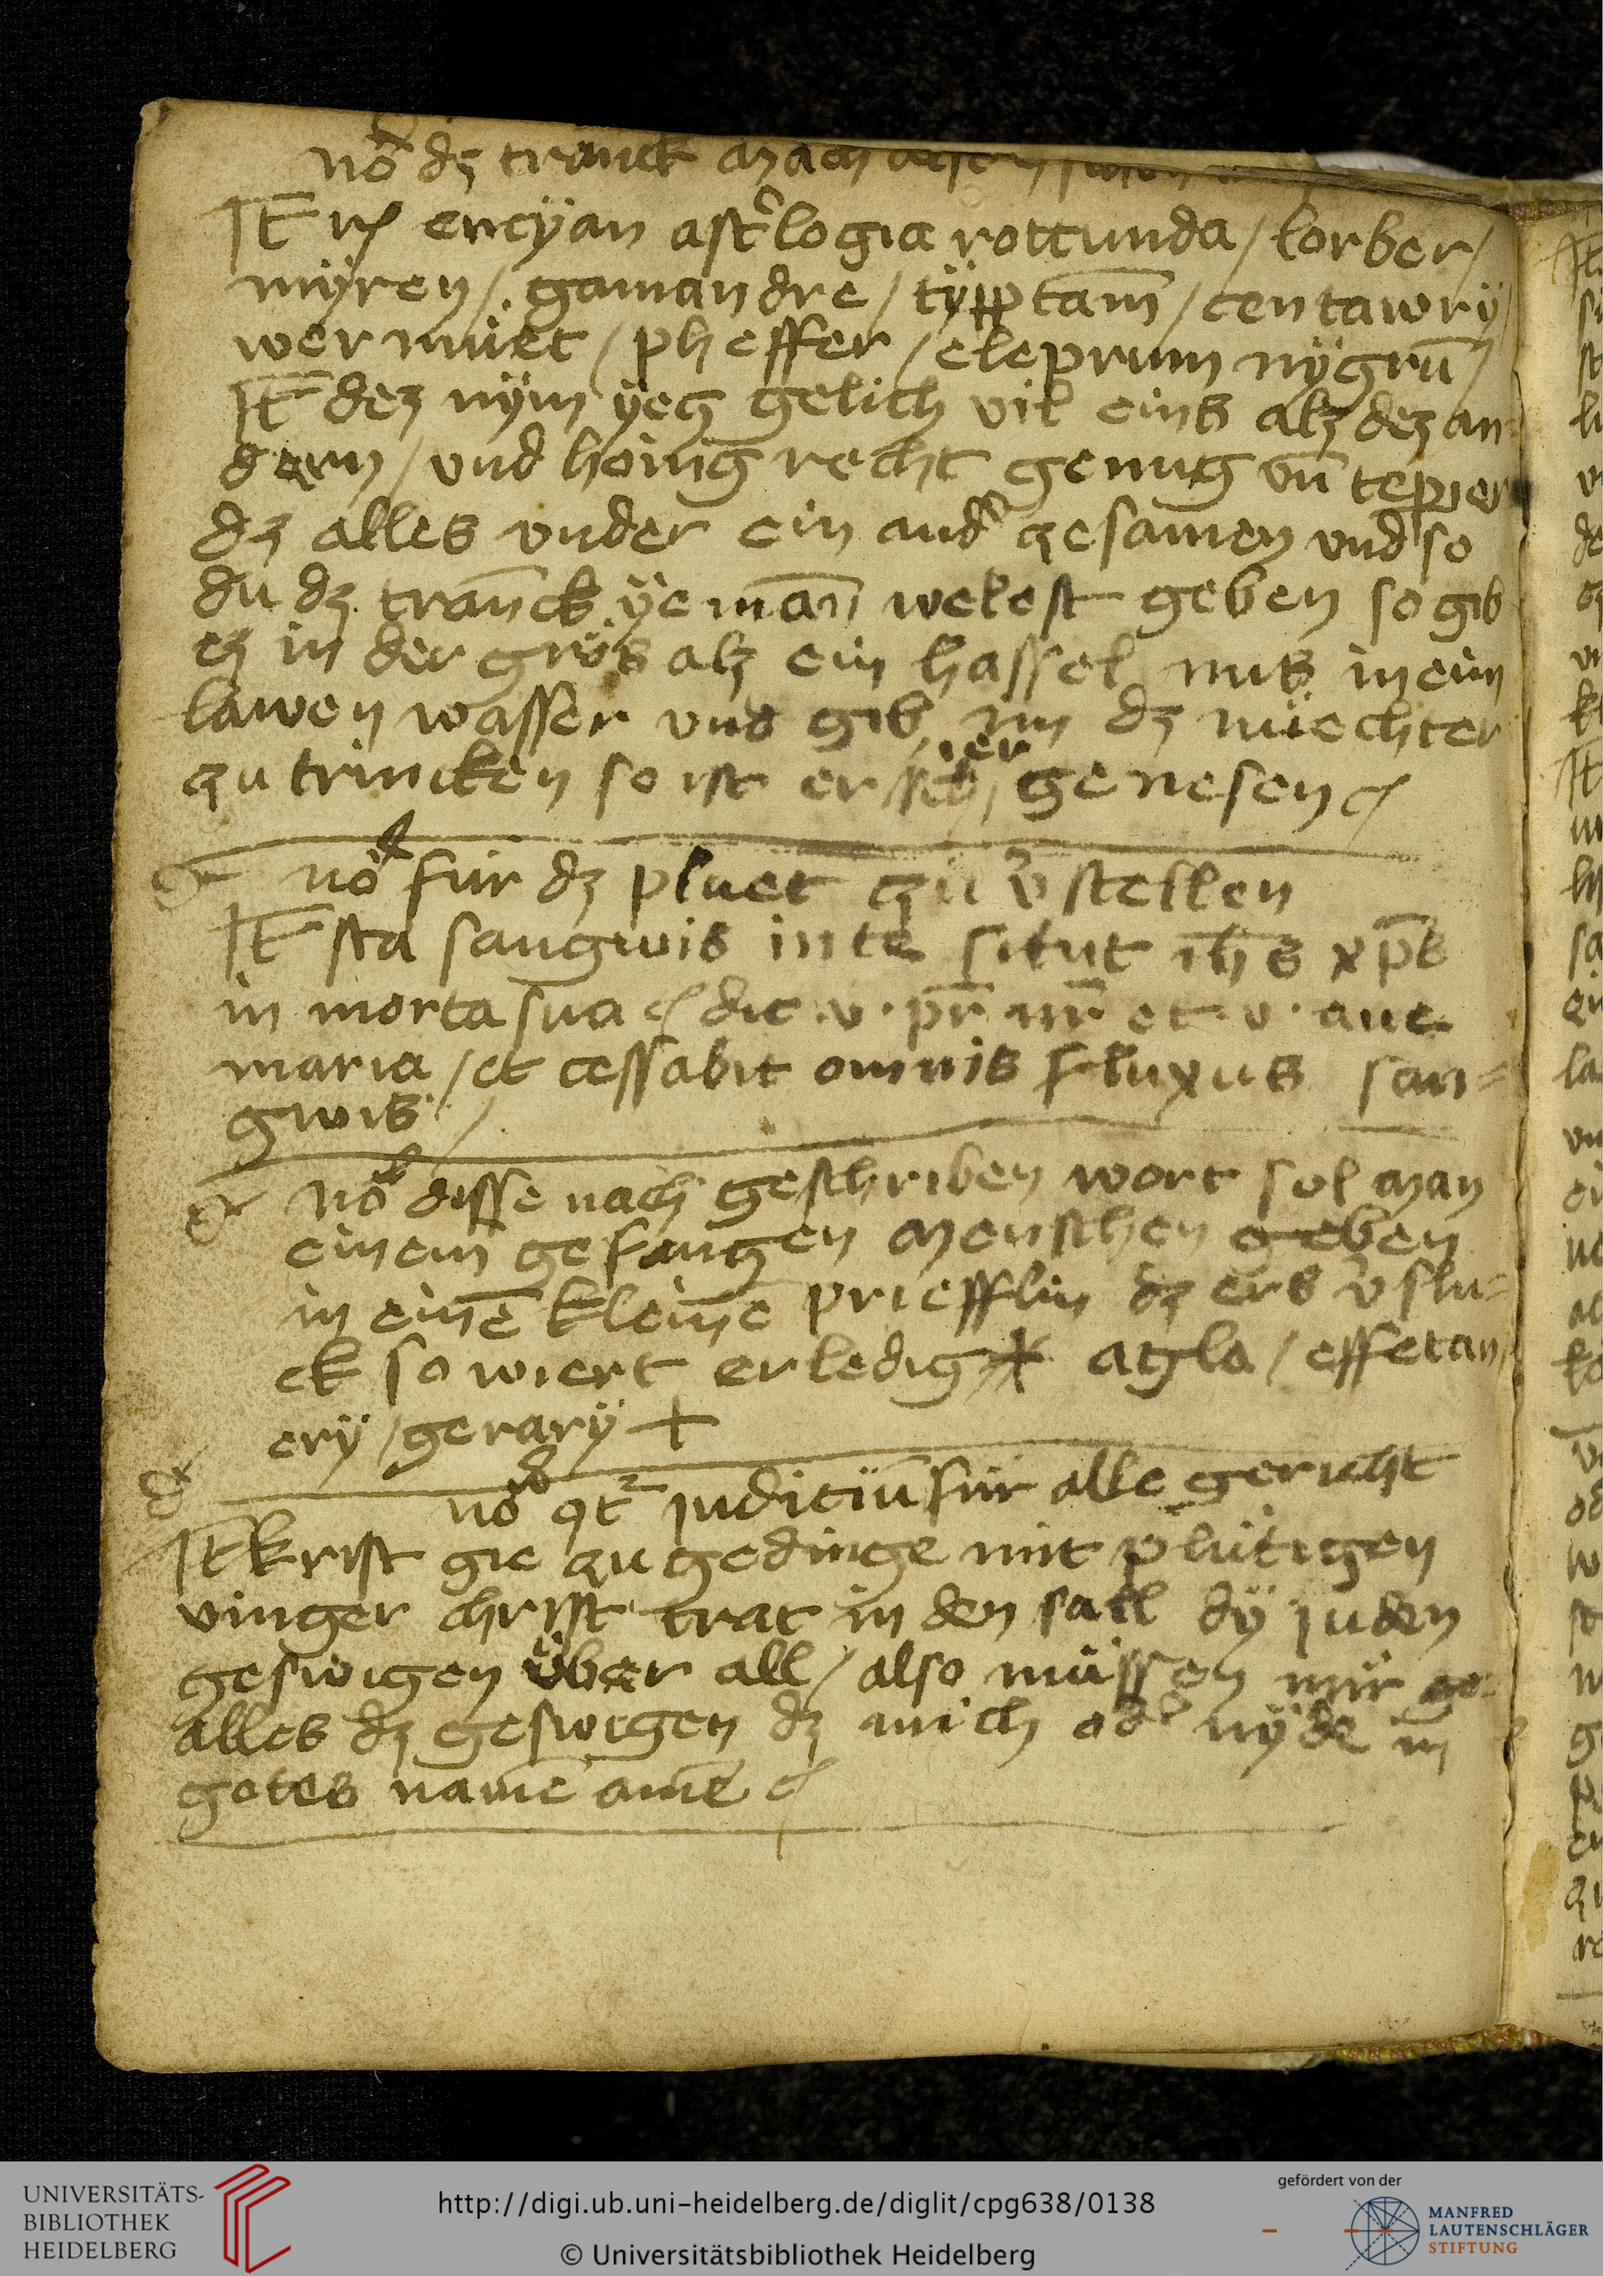 nō dz tranck mach
Jt̄ rꝭ encÿan astrͦlogia rottunda / lorber /
mÿren / gamandre / tÿpptam̄ / centawrÿ /
wermuͤet / pheffer / eleprum nÿgrū /
Jt̄ dez nÿm ÿeg gelich vil eins alz dez an=
dern / vnd hönig recht genug vn̄ tepier
dz alles vnder ein and̉ zesamen vnd so
du dz tranck ÿeman̄ welest geben so gib
ez in der grös alz ein hassel nus in eim
lawen wasser vnd gib im dz nüechter
zu trincken so ist er sicher genesen
nō für dz pluet zü v̉stellen
Jt̄ sta sangwis in te sicut ih̄s xp̄s
in morta sua dic .v. pr̄ nr̄ et .v. aue
maria / et cessabit omnis fluxus san=
gwis /
nō disse nach geschriben wort sol man
einem gefangen menschen geben
in einē kleinē priefflin dz ers v̉slu=
ck so wiert er ledig + agla / effetan /
erÿ / gerarÿ +
nō 9t² judiciū für alle gericht
Jt̄ krist gie zu gedinge mit plütigen
vinger christ trat in den sall dÿ juden
geswigen über all / also müssen mir
alles dz geswigen dz mich od̉ nÿde in
gotes namē amē
UNIVERSITÄTS-
BIBLIOTHEK
HEIDELBERG
http://digi.ub.uni-heidelberg.de/diglit/cpg638/0138
© Universitätsbibliothek Heidelberg
gefördert von der
MANFRED
LAUTENSCHLÄGER
STIFTUNG